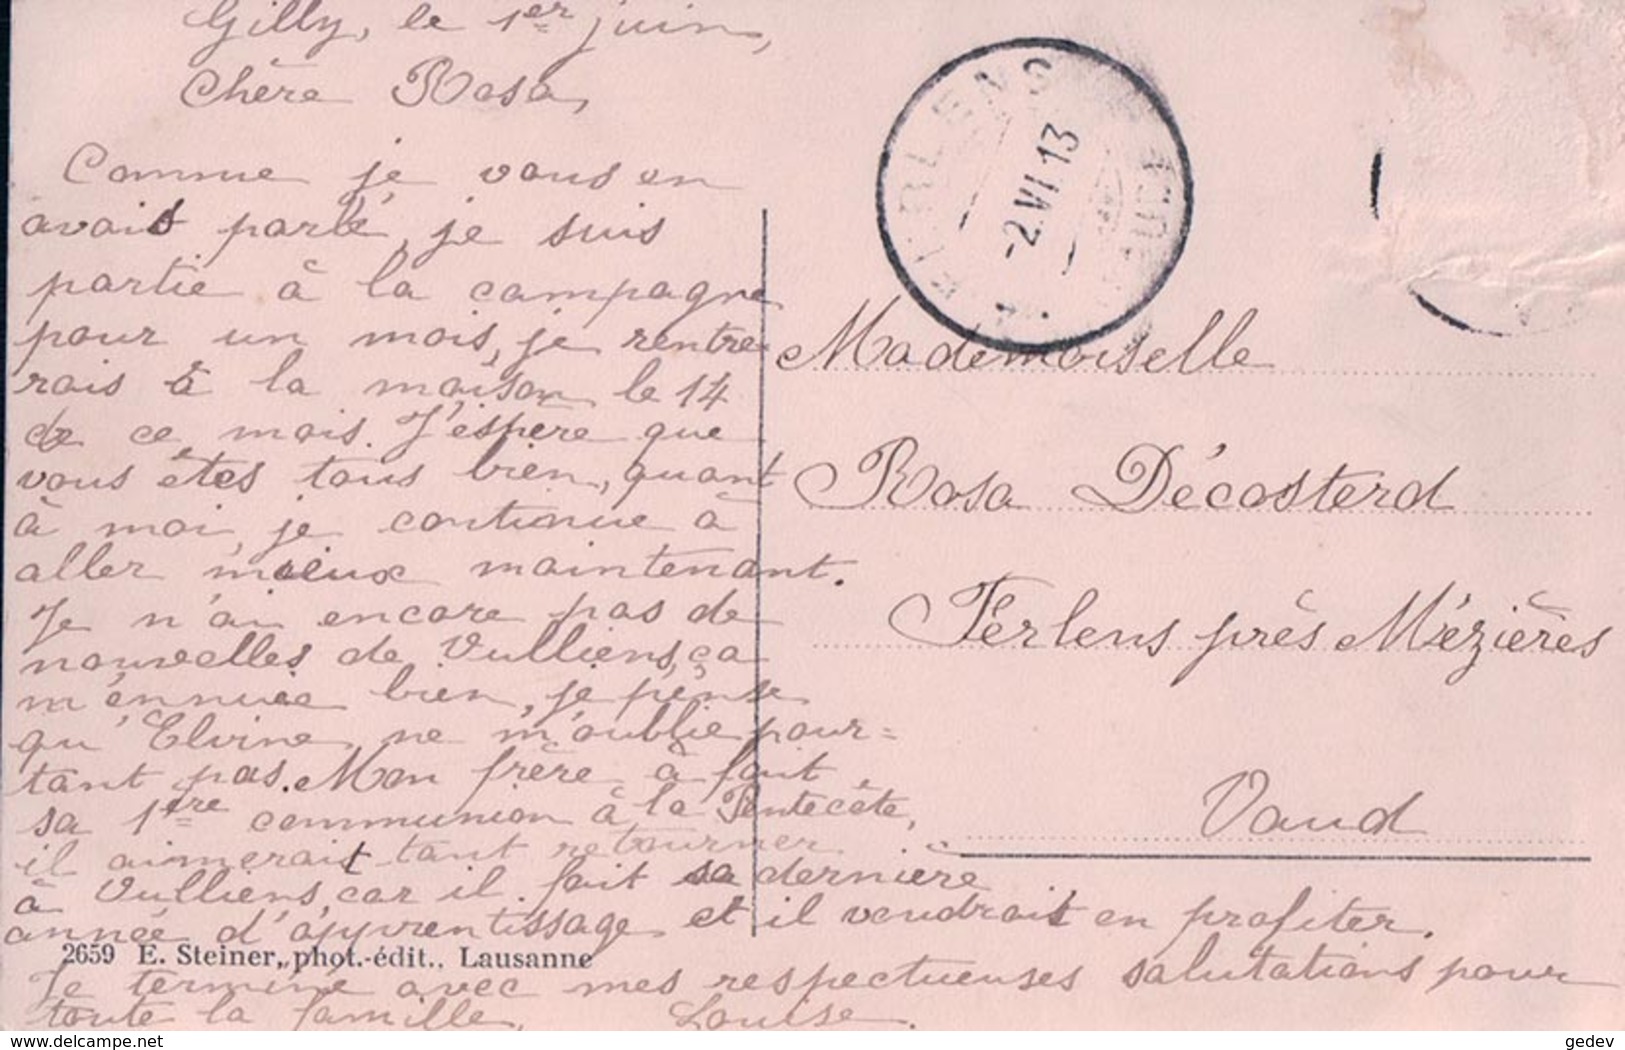 Gilly, le 1er juin,
Chère Rosa,
Comme je vous en
avais parlé, je suis
partie à la campagne
pour un mois, je rentre
rais à la maison le 14
de ce mois. J'espère que
vous êtes tous bien, quant
à moi, je continue à
aller mieux maintenant.
Je n'ai encore pas de
nouvelles de Vulliens, ça
m'ennuie bien, je pense
qu'Elvine ne m'oublie pour=
tant pas. Mon frère à fait
sa 1ère communion à la Pentecôte,
il aimerait tant retourner
à Vulliens, car il fait sa dernière
année d'apprentissage et il voudrait en profiter.
Je termine avec mes respectueuses salutations pour
toute la famille, Louise.
2659 E. Steiner, phot.-édit., Lausanne
FERLENS
-2.VI.13
Mademoiselle
Rosa Décosterd
Ferlens près Mézières
Vaud
www.delcampe.net
gedev